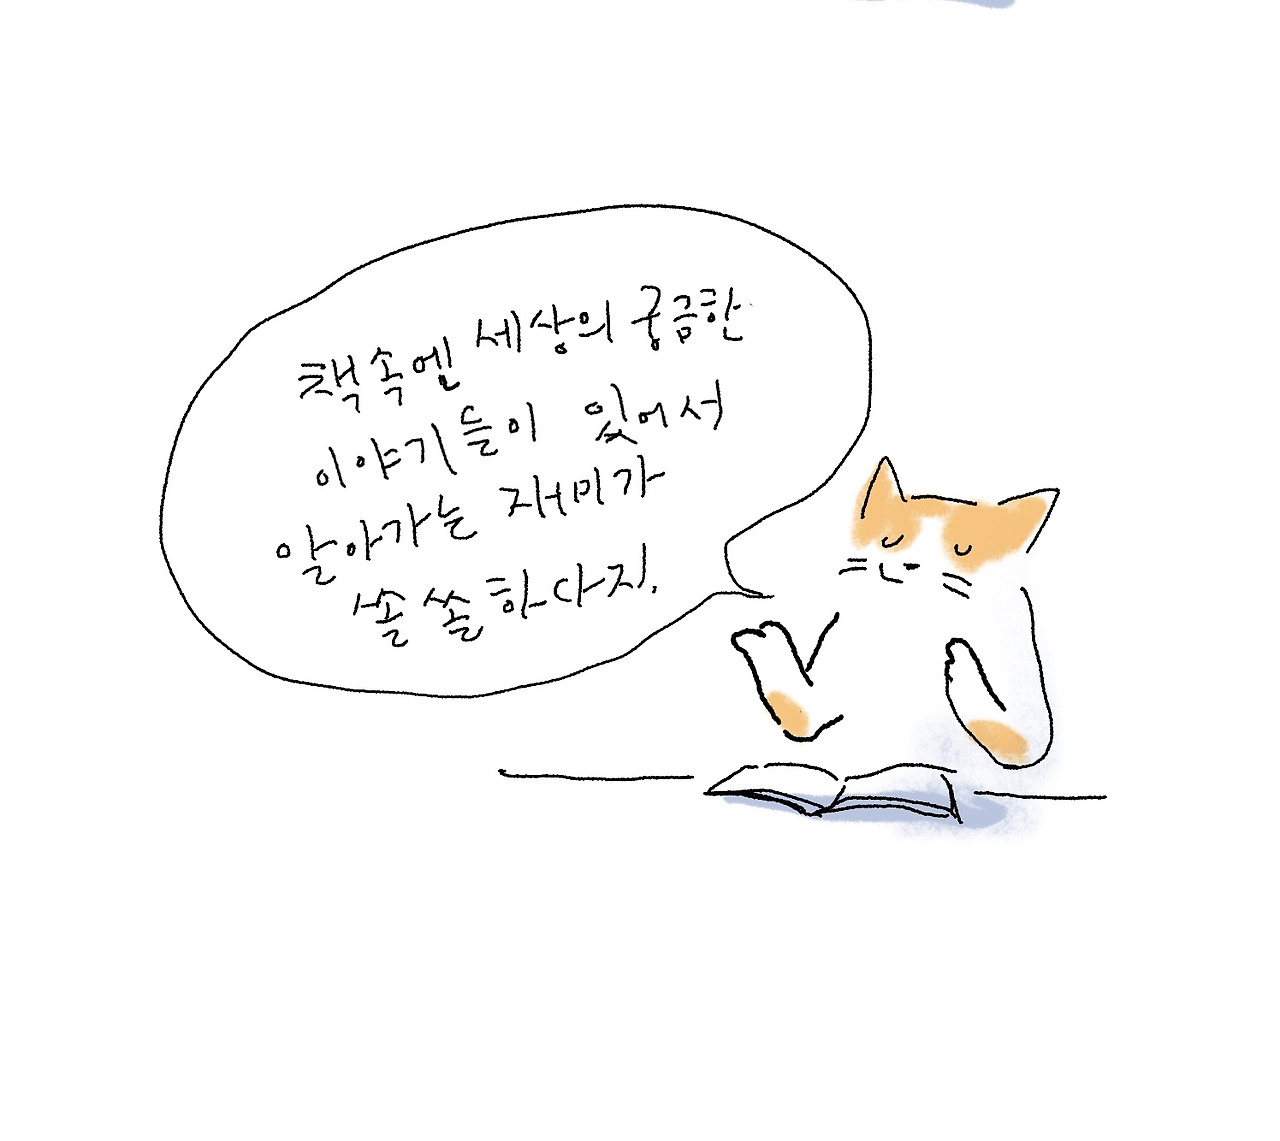 책 속엔 세상의 궁금한
이야기들이 있어서
알아가는 재미가
쏠쏠하다지.